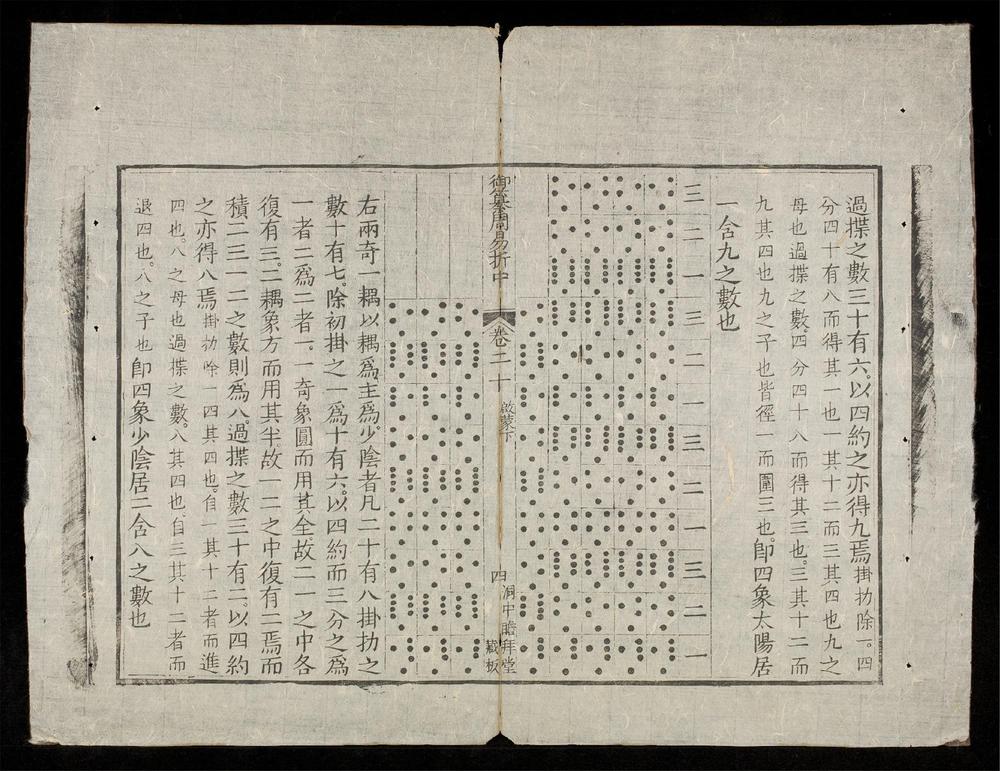 過揲之數三十有六。以四約之亦得九焉掛扐除一。四
分四十有八而得其一也一其十二而三其四也九之
母也過揲之數。四分四十八而得其三也。三其十二而
九其四也九之子也皆徑一而圍三也。即四象太陽居
一含九之數也
三
二
一
三
二
一
三
二
一
三
二
一
御纂周易折中
卷二十
啟蒙下
四
洞中瞻拜堂
藏板
右兩奇一耦以耦爲主爲少陰者凡二十有八掛扐之
數十有七。除初掛之一爲十有六。以四約而三分之爲
一者二爲二者一。一奇象圓而用其全。故二一之中各
復有三。二耦象方而用其半。故一二之中復有二焉而
積二三一二之數則爲八過揲之數三十有二。以四約
之亦得八焉掛扐除一四其四也。自一其十二者而進
四也。八之母也過揲之數。八其四也。自三其十二者而
退四也。八之子也即四象少陰居二含八之數也